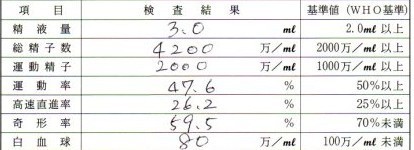 項目 検査結果 基準値(WHO基準)
精液量 3.0 ml 2.0ml以上
総精子数 4200 万/ml 2000万/ml以上
運動精子 2000 万/ml 1000万/ml以上
運動率 47.6 % 50%以上
高速直進率 26.2 % 25%以上
奇形率 59.5 % 70%未満
白血球 80 万/ml 100万/ml未満